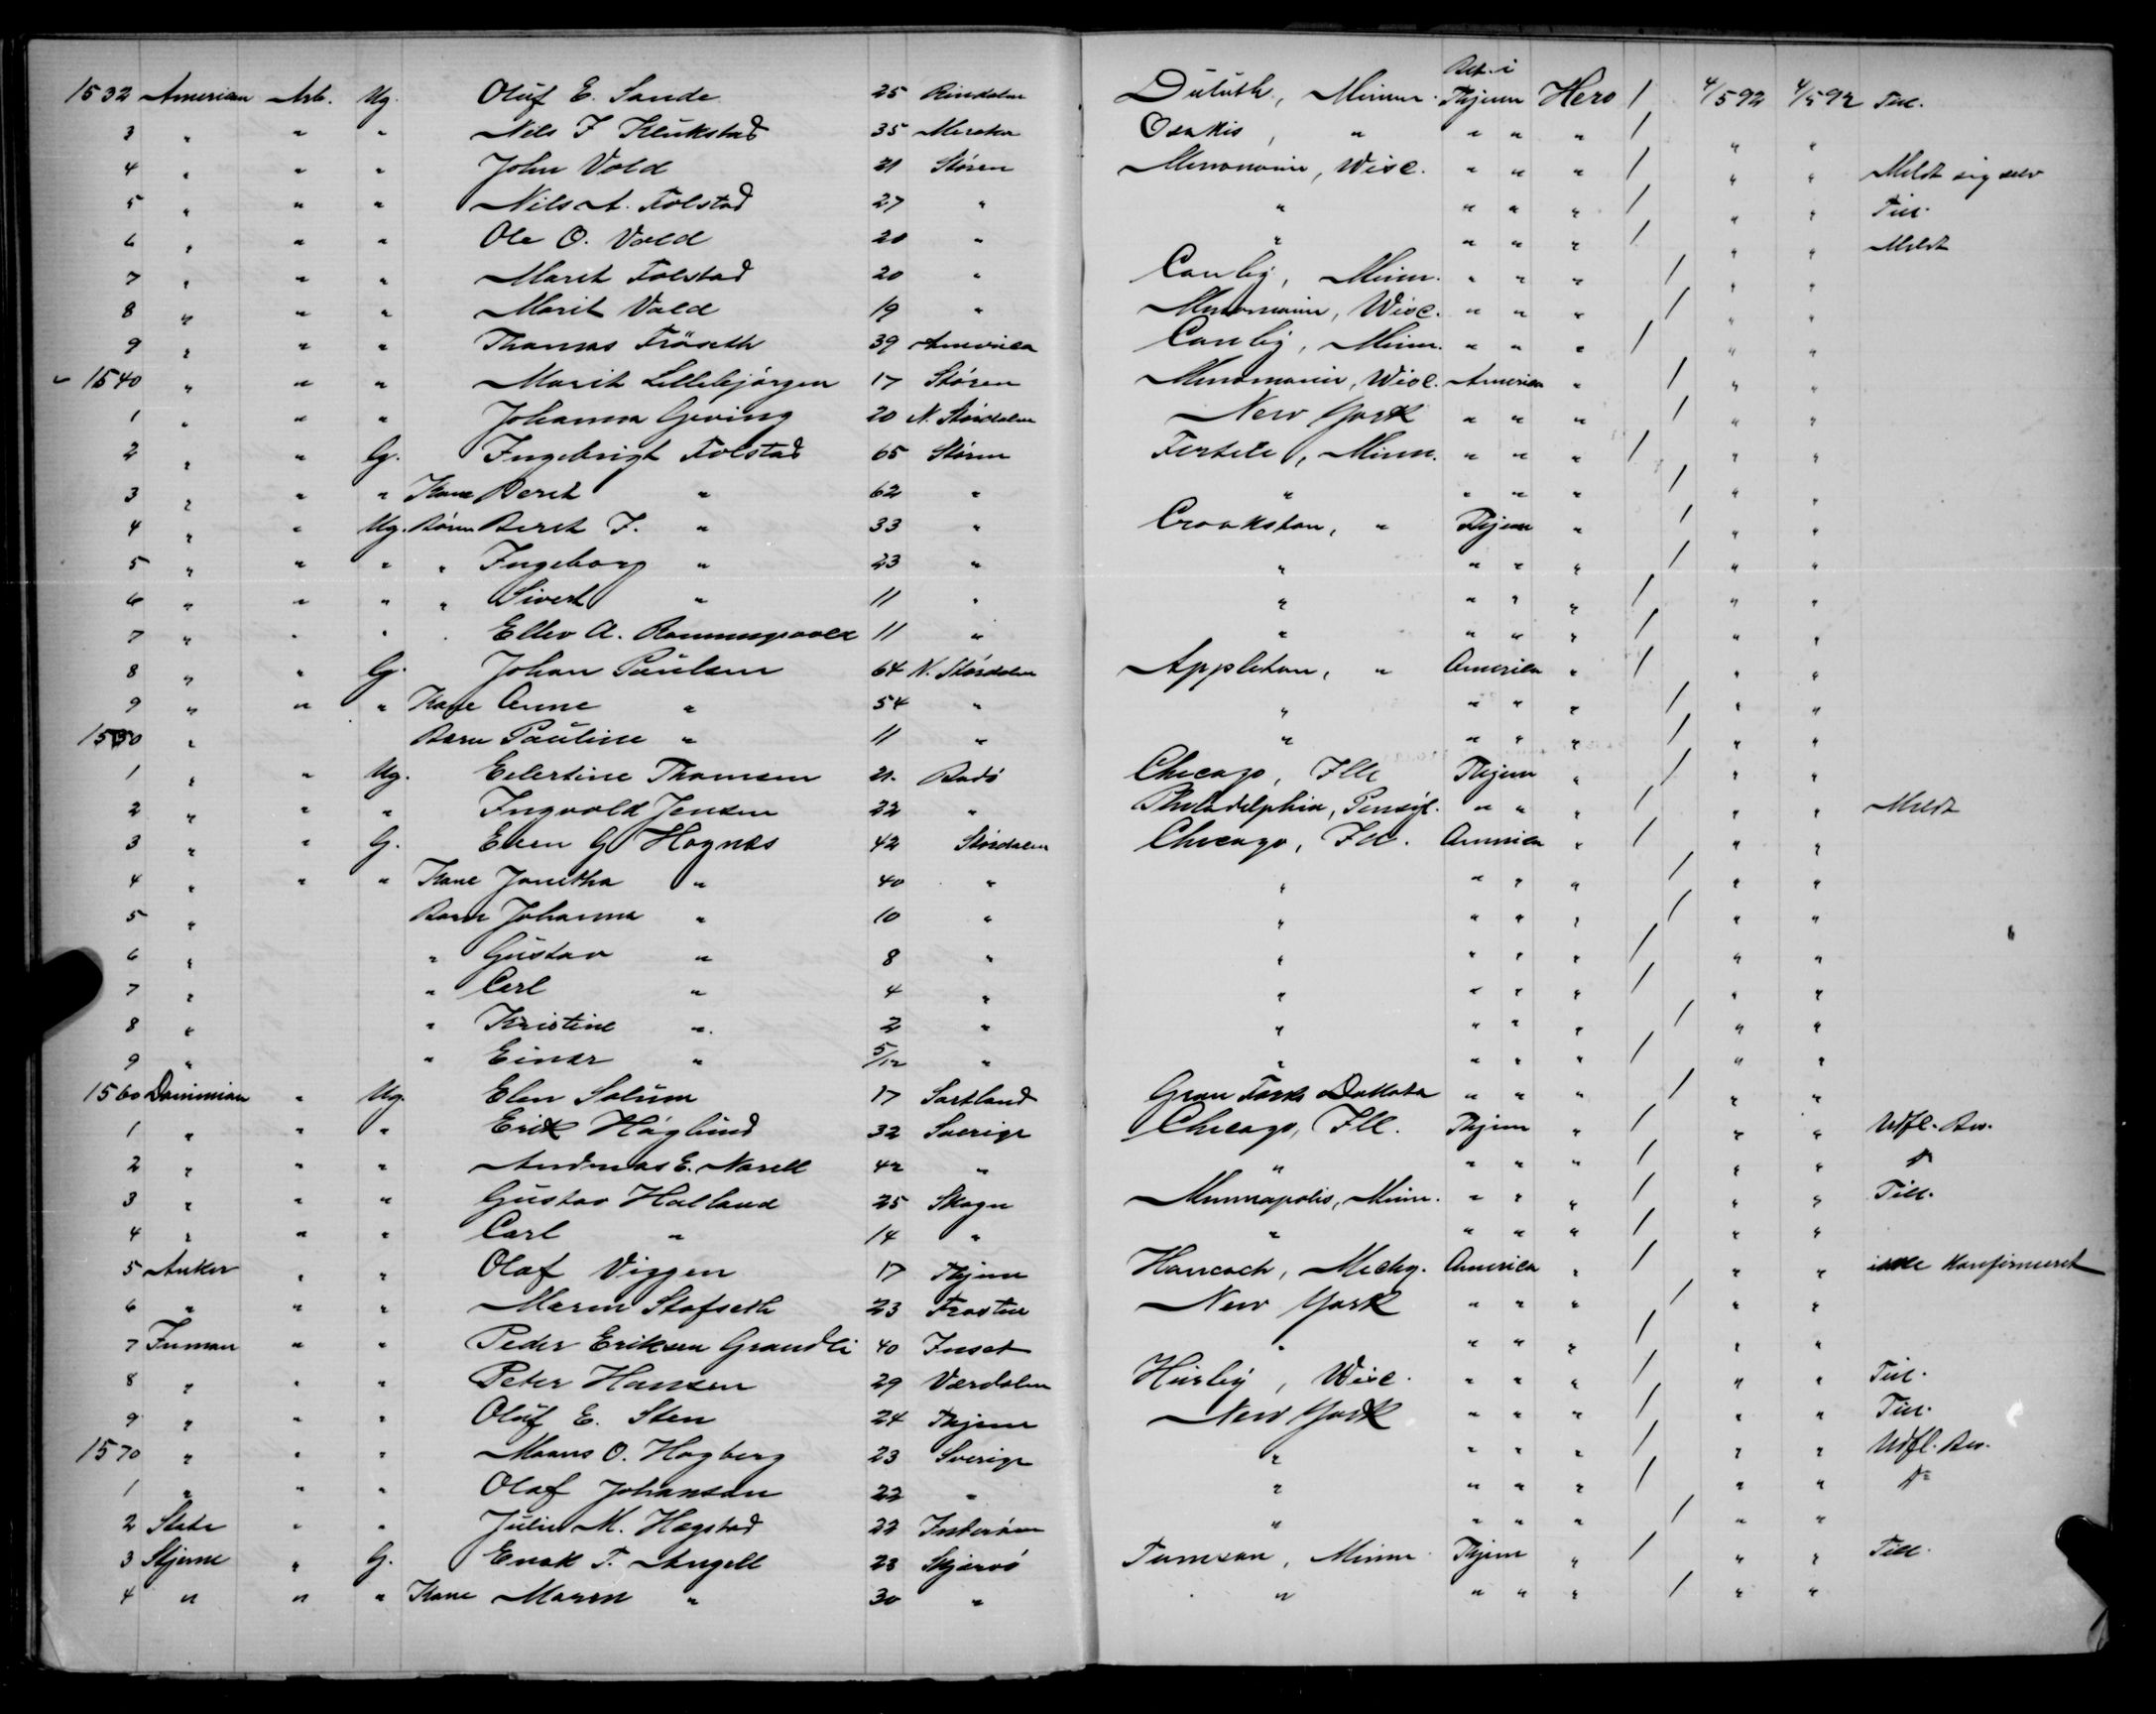 1532 American Arb. Ug. Oluf E. Sande 25 Rindalen Duluth, Minn. Bet. i Thjem Hero / 4/5 92 4/5 92 Till.
3 " " " Nels J Klukstad 35 Meraker Osakis, " " " " / " "
4 " " " John Vold 21 Støren Menomonie, Wisc. " " " / " " Meldt sig selv
5 " " " Nils A. Folstad 27 " " " " " / " " Till.
6 " " " Ole O. Vold 20 " " " " " / " " Meldt
7 " " " Marit Folstad 20 " Canby, Minn. " " " / " "
8 " " " Marit Vold 19 " Menomonie, Wisc. " " " / " "
9 " " " Thomas Fröseth 39 America Canby, Minn. " " " / " "
1540 " " " Marit Lillebjørgen 17 Støren Menomonie, Wisc. America " / " "
1 " " " Johanna Geving 20 N. Stördalen New York " " " / " "
2 " " G. Ingebrigt Folstad 65 Støren Fertile, Minn. " " " / " "
3 " " " Kone Berit " 62 " " " " " / " "
4 " " Ug. Børn Berit I. " 33 " Crookston, " Thjem " / " "
5 " " " " Ingeborg " 23 " " " " " / " "
6 " " " " Sivert " 11 " " " " " / " "
7 " " " Ellev A. 11 " " " " " / " "
8 " " G. Johan Paulsen 64 N. Stördalen Appleton, " America " / " "
9 " " " Kone Anne " 54 " " " " " / " "
1550 " Barn Pauline " 11 " " " " " / " "
1 " " Ug. Edertine Thomsen 21. Bodø Chicago, Ill Thjem " / " "
2 " " " Ingvold Jensen 22 " Philadelphia, Pensyl. " " " / " " Meldt
3 " " G. Even G Hognes 42 Stördalen Chicago, Ill. America " / " "
4 " " " Kone Janetha " 40 " " " " " / " "
5 " Barn Johanna " 10 " " " " " / " "
6 " " Gustav " 8 " " " " " / " "
7 " " Carl " 4 " " " " " / " "
8 " " Kristine " 2 " " " " " / " "
9 " " Einar " 5/12 " " " " " / " "
1560 Dominion " Ug. Elen Solum 17 Sortland Gran Forks Dakota " " " / " "
1 " " " Erik Höglund 32 Sverige Chicago, Ill. Thjem " / " " Udfl. Bev.
2 " " " Andreas E. Norell 42 " " " " " / " "
3 " " " Gustav Halland 25 Skogn Minneapolis, Minn. " " " / " " Till.
4 " " " Carl " 14 " " " " " / " "
5 Anker " " Olaf Viggen 17 Thjem Hancoch, Michg. America " / " " ikke konfirmeret
6 " " " Maren Stafseth 23 Frosten New York " " " / " "
7 Inman " " Peder Eriksen Grandli 40 Inset " " " " / " "
8 " " " Peter Hansen 29 Værdalen Hurley, Wisc. " " " / " " Till.
9 " " " Oluf E. Sten 24 Thjem New York " " " / " " Till.
1570 " " " Maans O. Hagberg 23 Sverige " " " " / " " Udfl. Bev.
1 " " " Olaf Johansen 22 " " " " " / " "
2 State " " Julie M. Hegstad 22 Inderøen " " " " / " "
3 Stjerne " G. Enok T. Angell 28 Skjervö Tamson, Minn Thjem " / " " Till.
4 " " " Kone Maren " 30 " " " " " / " "